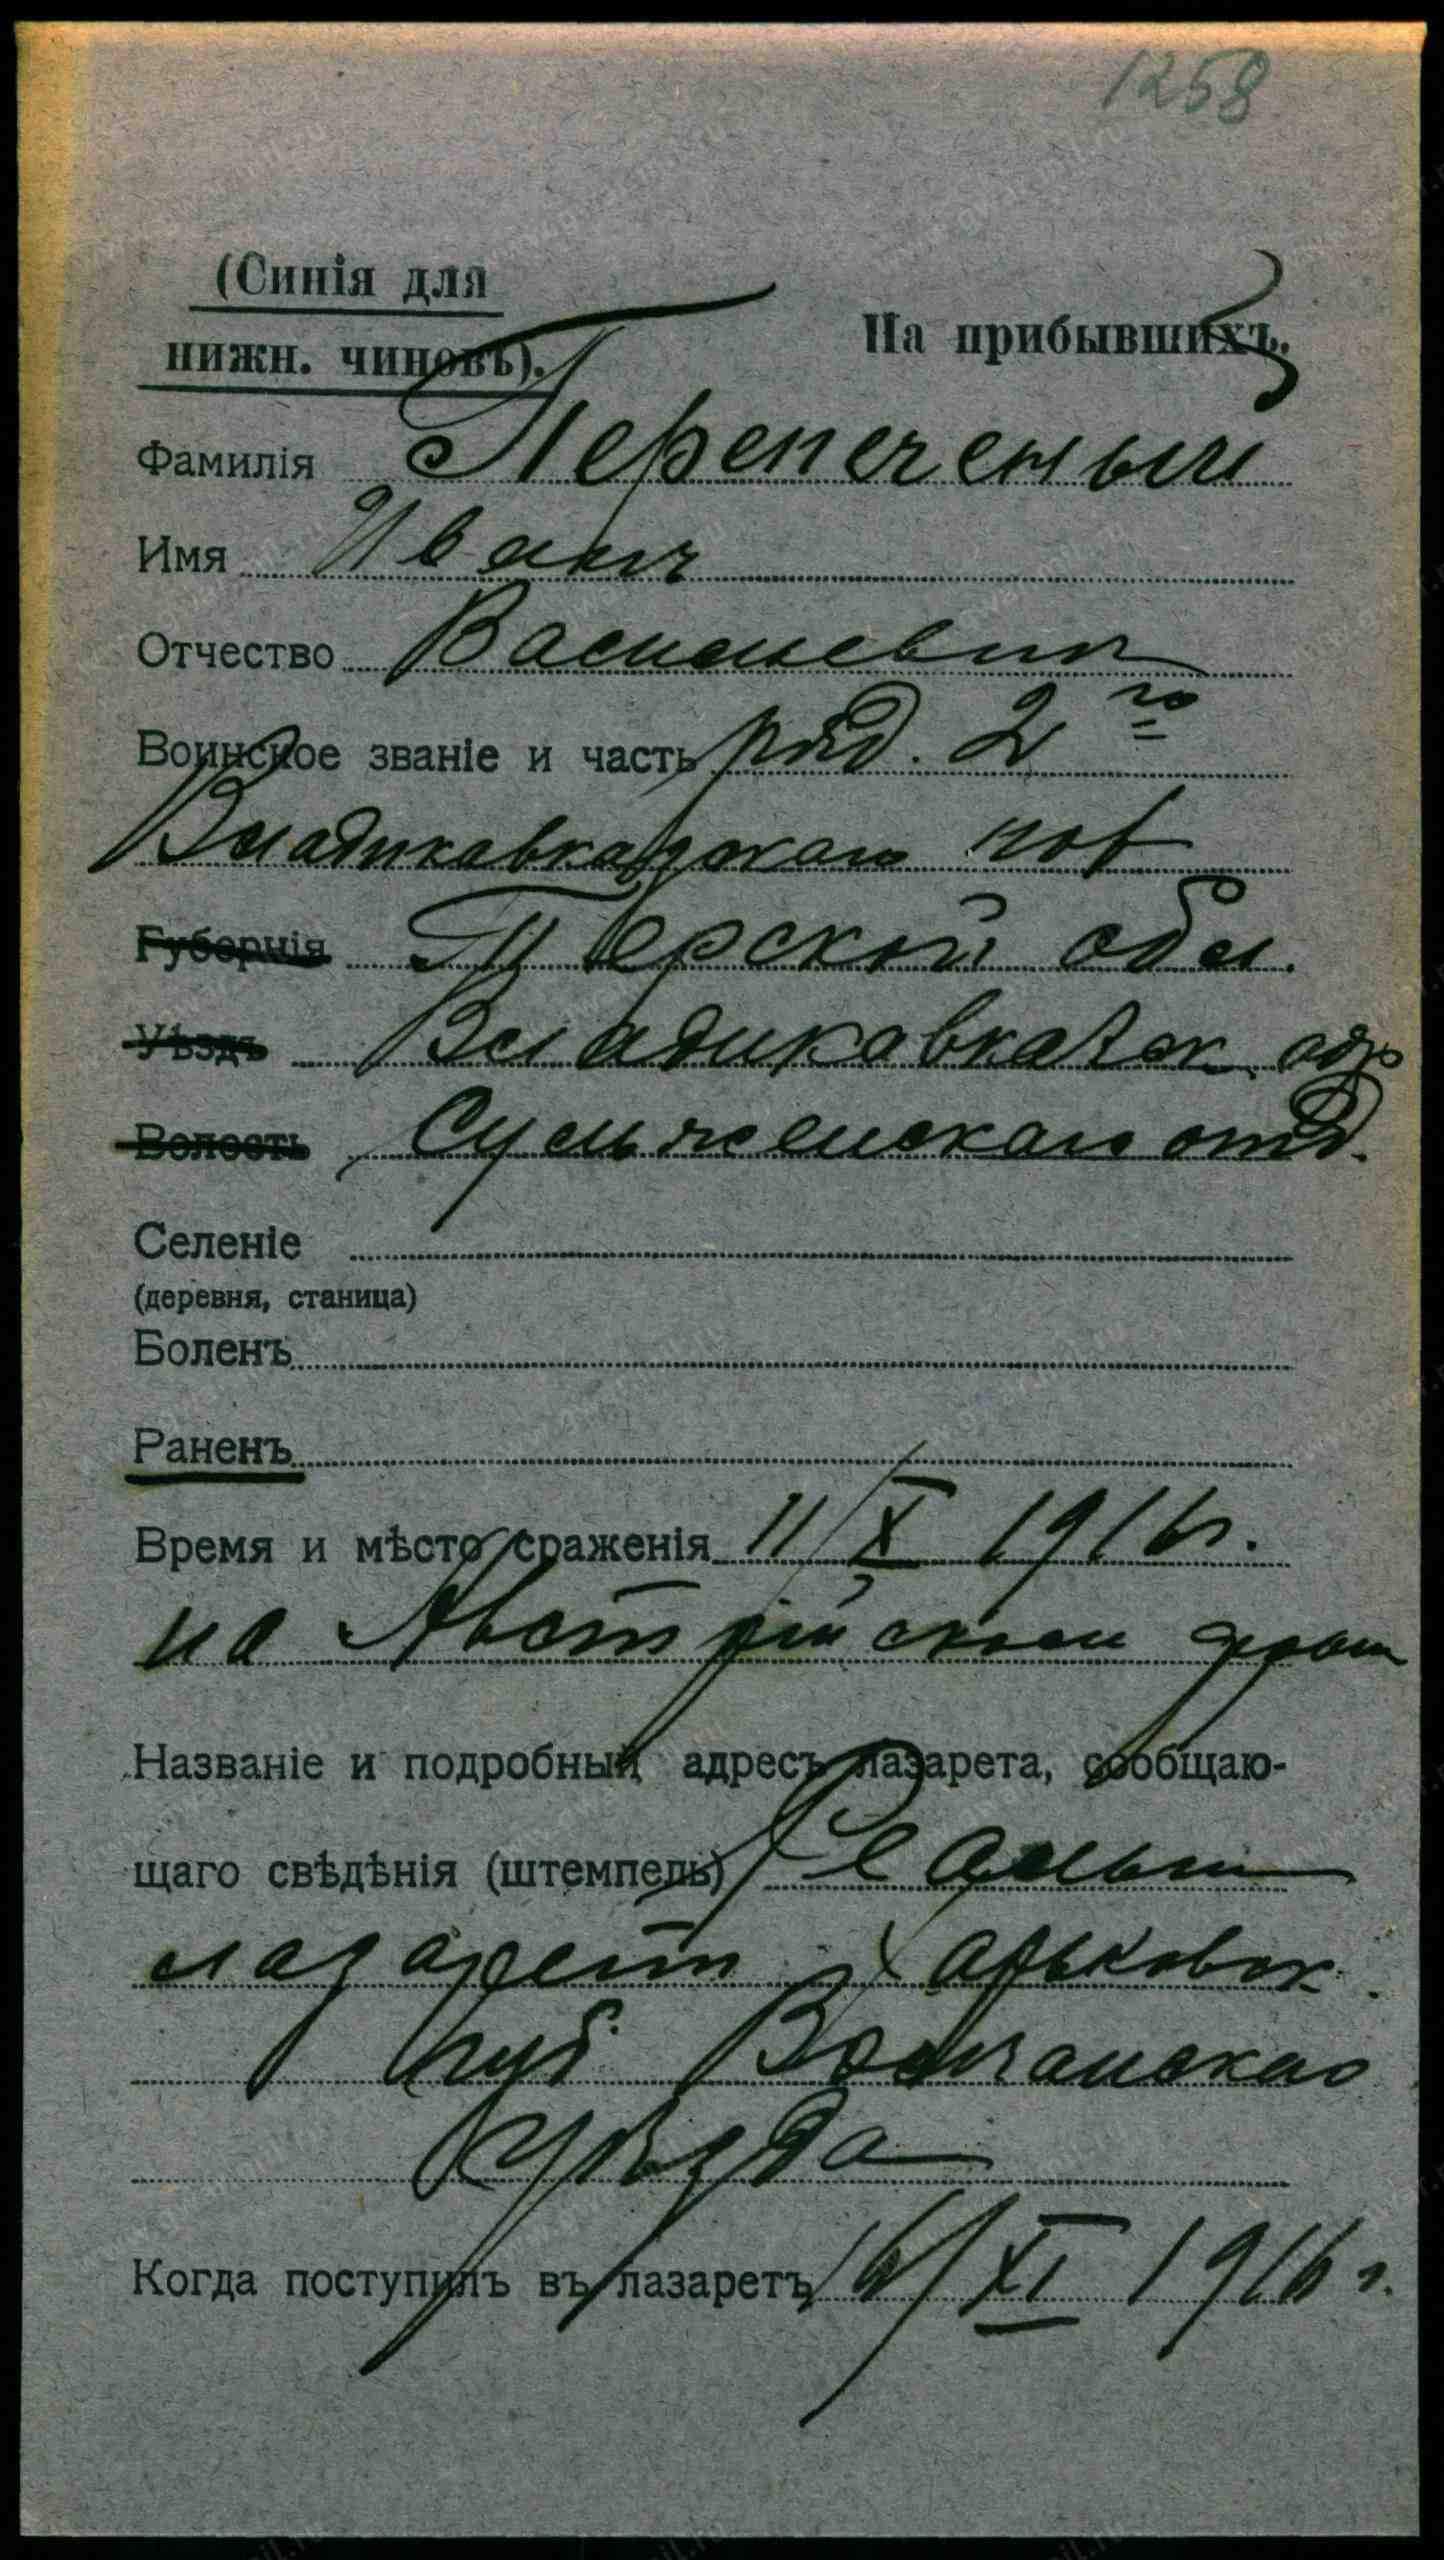 1258
(Синія для
нижн. чиновъ).
На прибывшихъ.
Фамилія Перепеченый
Имя Иванъ
Отчество Васильевич
Воинское званіе и часть ряд. 2го
Владикавказскаго
Губернія Терской обл.
Уѣздъ Владикавказск.
Волость Сунженскаго отд.
Селеніе
(деревня, станица)
Боленъ
Раненъ
Время и мѣсто сраженія 11/X 1916 г.
на Австрійском
Названіе и подробный адресъ лазарета, сообщаю-
щаго свѣдѣнія (штемпель)
лазарет Харьковск.
губ. Волчанскаго
уѣзда
Когда поступилъ въ лазаретъ 16/XI 1916 г.